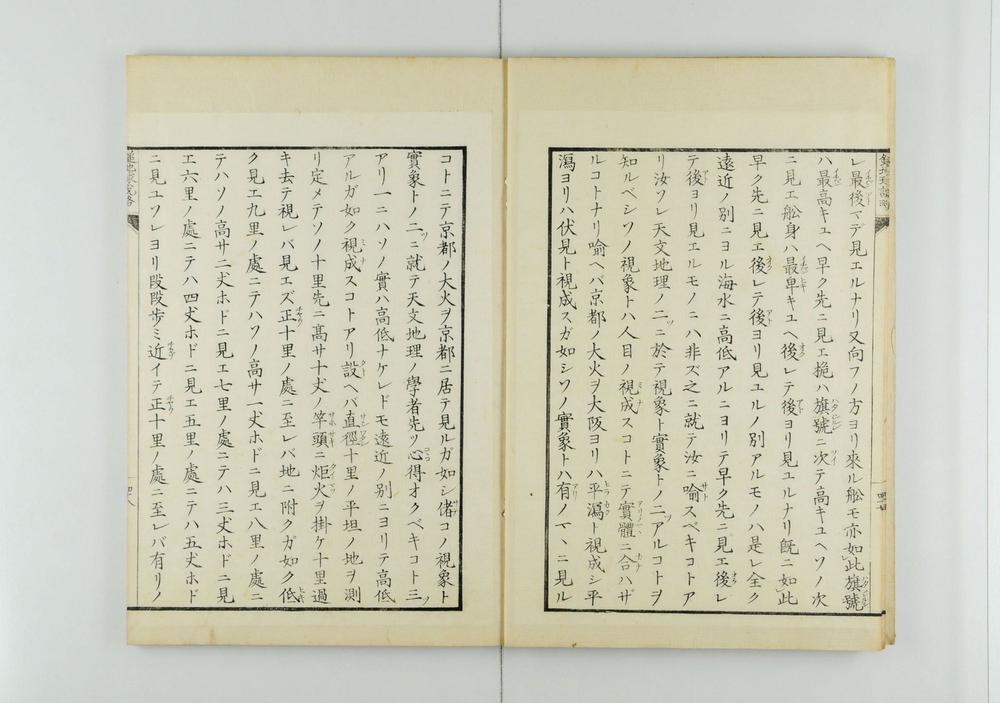 レ最後マデ見エルナリ又向フノ方ヨリ來ル舩モ亦如此旗號
ハ最高キユヘ早ク先ニ見エ桅ハ旗號ニ次テ高キユヘソノ次
ニ見エ舩身ハ最卑キユヘ後レテ後ヨリ見ユルナリ既ニ如此
早ク先ニ見エ後レテ後ヨリ見ユルノ別アルモノハ是レ全ク
遠近ノ別ニヨル海水ニ高低アルニヨリテ早ク先ニ見エ後レ
テ後ヨリ見エルモノニハ非ズ之ニ就テ汝ニ喻スベキコトア
リ汝ソレ天文地理ノ二ツニ於テ視象ト實象トノ二ツアルコトヲ
知ルベシソノ視象トハ人目ノ視成スコトニテ實體ニ合ハザ
ルコトナリ喻ヘバ京都ノ大火ヲ大阪ヨリハ平瀉ト視成シ平
瀉ヨリハ伏見ト視成スガ如シソノ實象トハ有ノマヽニ見ル
コトニテ京都ノ大火ヲ京都ニ居テ見ルガ如シ偖コノ視象ト
實象トノ二ツニ就テ天文地理ノ學者先ツ心得オクベキコト三ツ
アリ一ニハソノ實ハ高低ナケレドモ遠近ノ別ニヨリテ高低
アルガ如ク視成スコトアリ設ヘバ直徑十里ノ平坦ノ地ヲ測
リ定メテソノ十里先ニ髙サ十丈ノ竿頭ニ炬火ヲ掛ケ十里過
キ去テ視レバ見エズ正十里ノ處ニ至レバ地ニ附クガ如ク低
ク見エ九里ノ處ニテハソノ高サ一丈ホドニ見エ八里ノ處ニ
テハソノ高サ二丈ホドニ見エ七里ノ處ニテハ三丈ホドニ見
エ六里ノ處ニテハ四丈ホドニ見エ五里ノ處ニテハ五丈ホド
ニ見ユソレヨリ段段歩ミ近イテ正十里ノ處ニ至レバ有リノ